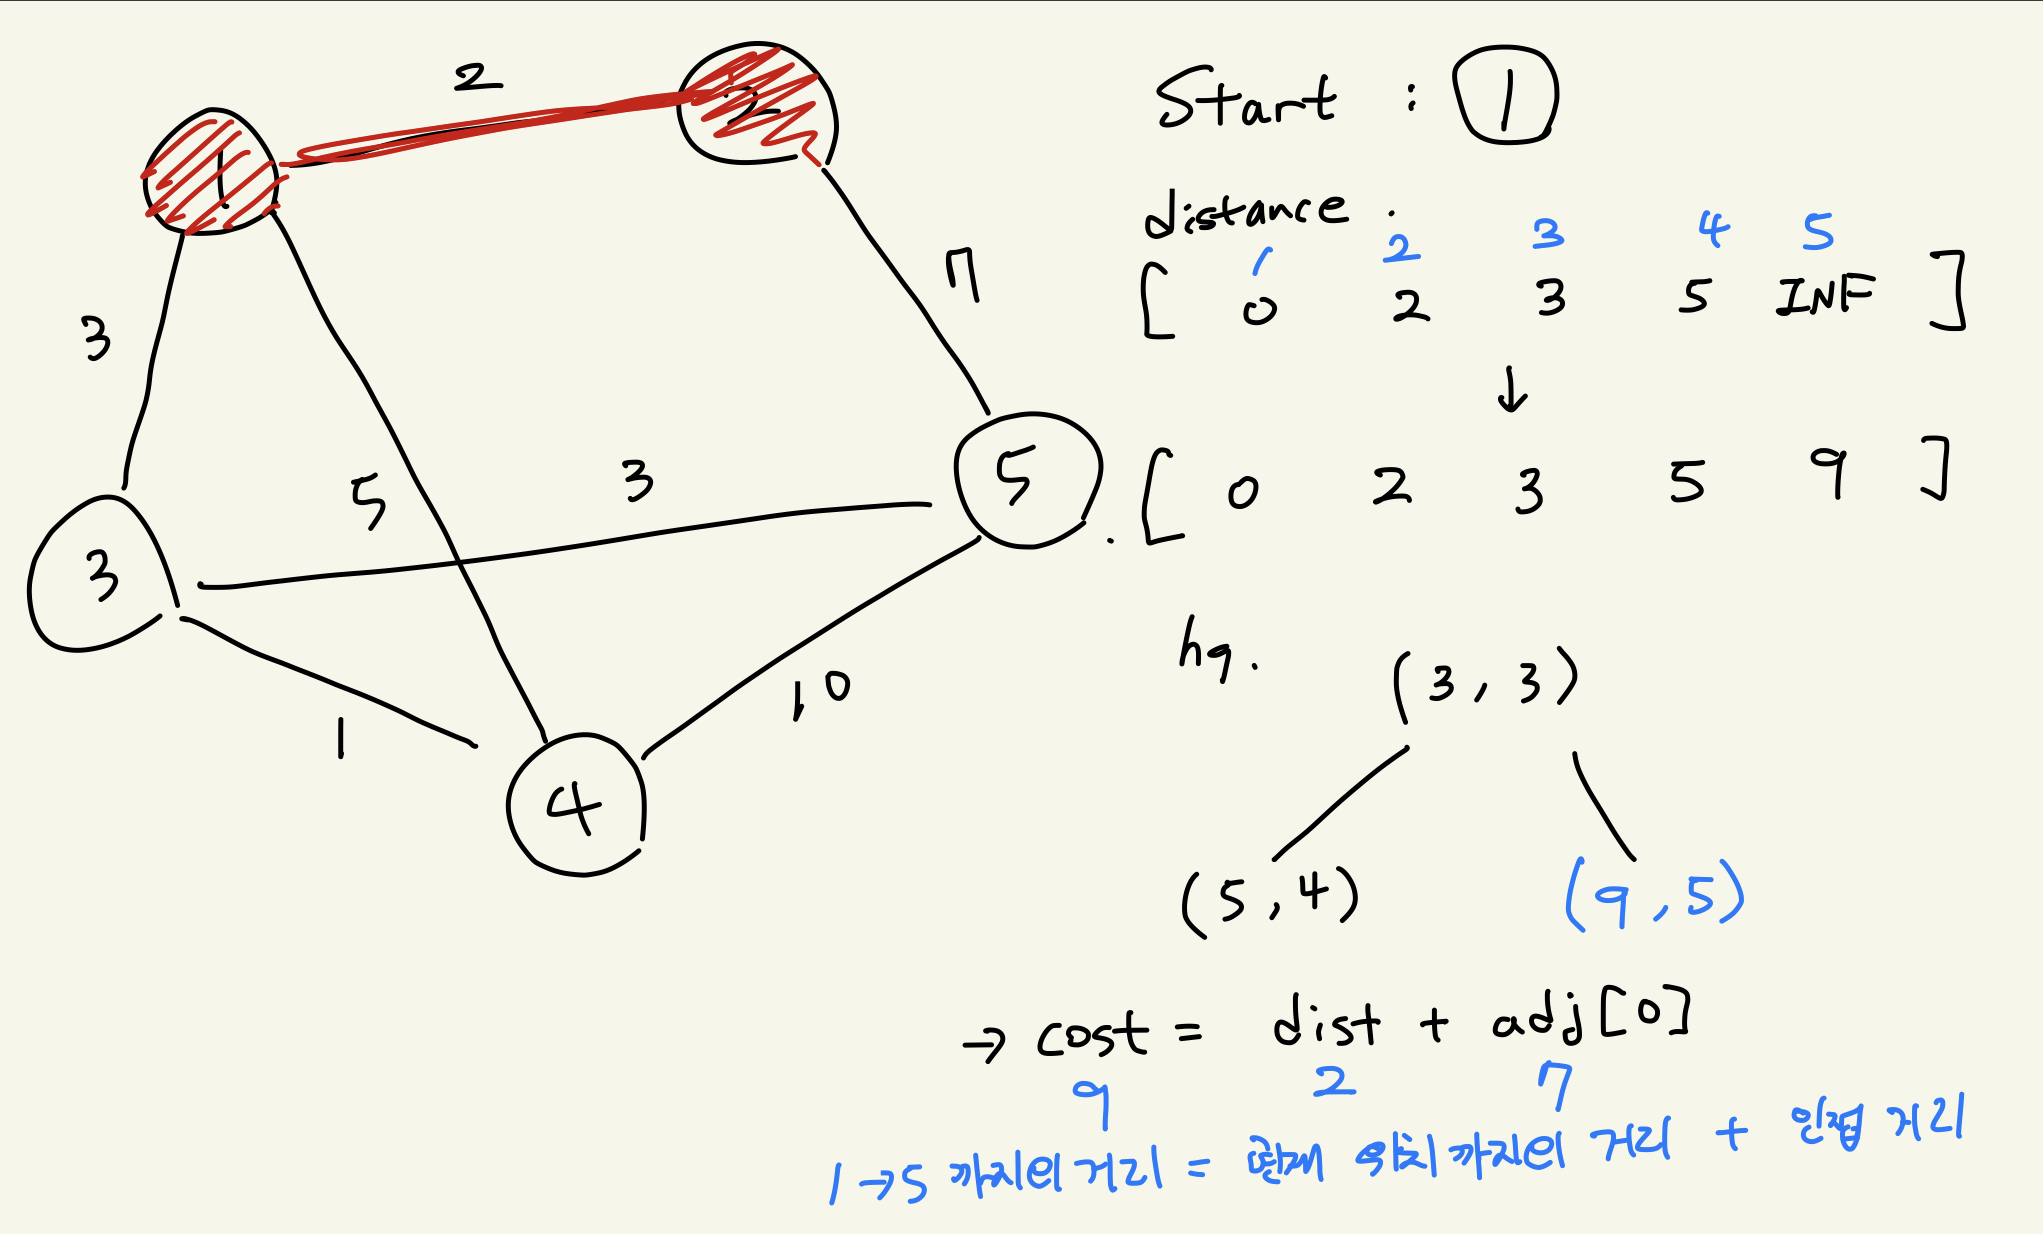 2
1
2
3
7
5
3
5
3
1
10
4
Start : 1
distance :
1 2 3 4 5
[ 0 2 3 5 INF ]
↓
[ 0 2 3 5 9 ]
hq.
(3, 3)
(5, 4) (9, 5)
→ cost = dist + adj[0]
9 2 7
1 → 5 까지의 거리 = 현재 위치까지의 거리 + 인접 거리